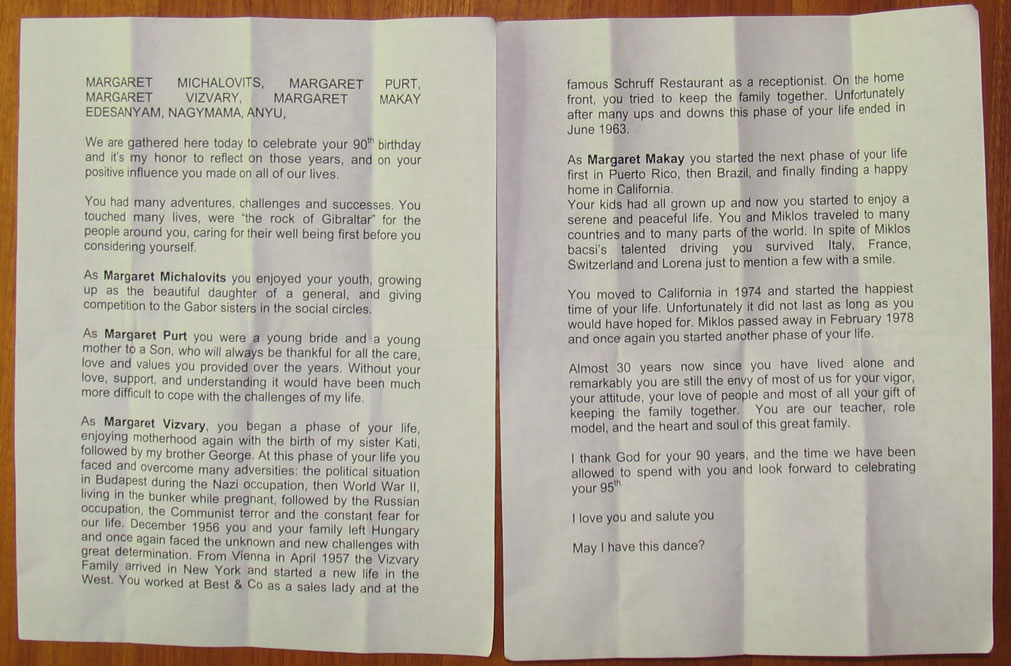 MARGARET MICHALOVITS, MARGARET PURT,
MARGARET VIZVARY, MARGARET MAKAY
EDESANYAM, NAGYMAMA, ANYU,
We are gathered here today to celebrate your 90th birthday
and it's my honor to reflect on those years, and on your
positive influence you made on all of our lives.
You had many adventures, challenges and successes. You
touched many lives, were "the rock of Gibraltar" for the
people around you, caring for their well being first before you
considering yourself.
As Margaret Michalovits you enjoyed your youth, growing
up as the beautiful daughter of a general, and giving
competition to the Gabor sisters in the social circles.
As Margaret Purt you were a young bride and a young
mother to a Son, who will always be thankful for all the care,
love and values you provided over the years. Without your
love, support, and understanding it would have been much
more difficult to cope with the challenges of my life.
As Margaret Vizvary, you began a phase of your life,
enjoying motherhood again with the birth of my sister Kati,
followed by my brother George. At this phase of your life you
faced and overcome many adversities: the political situation
in Budapest during the Nazi occupation, then World War II,
living in the bunker while pregnant, followed by the Russian
occupation, the Communist terror and the constant fear for
our life. December 1956 you and your family left Hungary
and once again faced the unknown and new challenges with
great determination. From Vienna in April 1957 the Vizvary
Family arrived in New York and started a new life in the
West. You worked at Best & Co as a sales lady and at the
famous Schruff Restaurant as a receptionist. On the home
front, you tried to keep the family together. Unfortunately
after many ups and downs this phase of your life ended in
June 1963.
As Margaret Makay you started the next phase of your life
first in Puerto Rico, then Brazil, and finally finding a happy
home in California.
Your kids had all grown up and now you started to enjoy a
serene and peaceful life. You and Miklos traveled to many
countries and to many parts of the world. In spite of Miklos
bacsi's talented driving you survived Italy, France,
Switzerland and Lorena just to mention a few with a smile.
You moved to California in 1974 and started the happiest
time of your life. Unfortunately it did not last as long as you
would have hoped for. Miklos passed away in February 1978
and once again you started another phase of your life.
Almost 30 years now since you have lived alone and
remarkably you are still the envy of most of us for your vigor,
your attitude, your love of people and most of all your gift of
keeping the family together. You are our teacher, role
model, and the heart and soul of this great family.
I thank God for your 90 years, and the time we have been
allowed to spend with you and look forward to celebrating
your 95th.
I love you and salute you
May I have this dance?